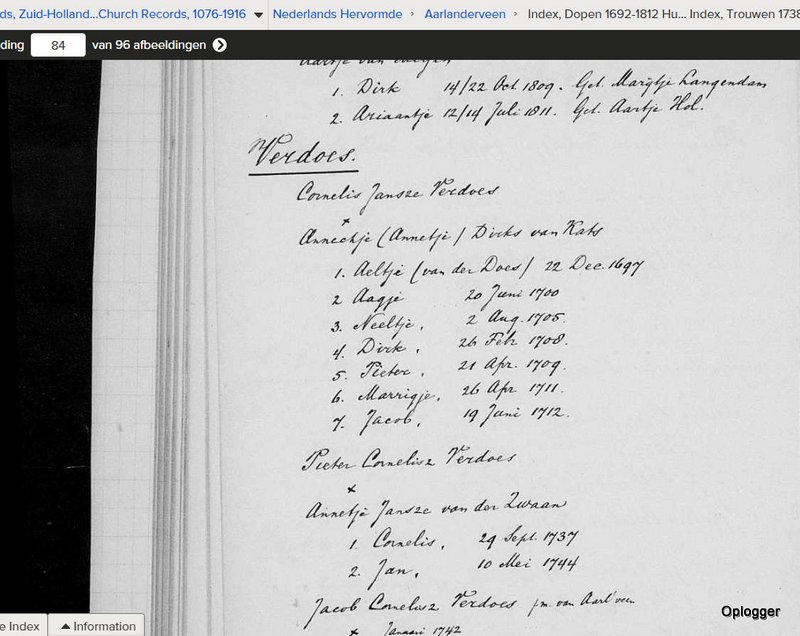 ds, Zuid-Holland...Church Records, 1076-1916 Nederlands Hervormde › Aarlanderveen › Index, Dopen 1692-1812 Hu... Index, Trouwen 1738
ding 84 van 96 afbeeldingen
1. Dirk 14/22 Oct. 1809. Get. Marijtje Langendam
2. Ariaantje 12/14 Juli 1811. Get. Aartje Hol.
Verdoes.
Cornelis Jansze Verdoes
x
Annechje (Annetje) Dirks van Kats
1. Aeltje (van der Does) 22 Dec. 1697
2 Aagje 20 Juni 1700
3. Neeltje, 2 Aug. 1705.
4. Dirk, 26 Febr 1708.
5. Pieter, 21 Apr. 1709.
6. Marrigje, 26 Apr 1711.
7. Jacob, 19 Juni 1712.
Pieter Cornelisz Verdoes
x
Annetje Jansze van der Zwaan
1. Cornelis, 29 Sept. 1737
2. Jan, 10 Mei 1744
Jacob Cornelisz Verdoes jm. van Aarl'veen
x Januari 1742
e Index Information
Oplogger